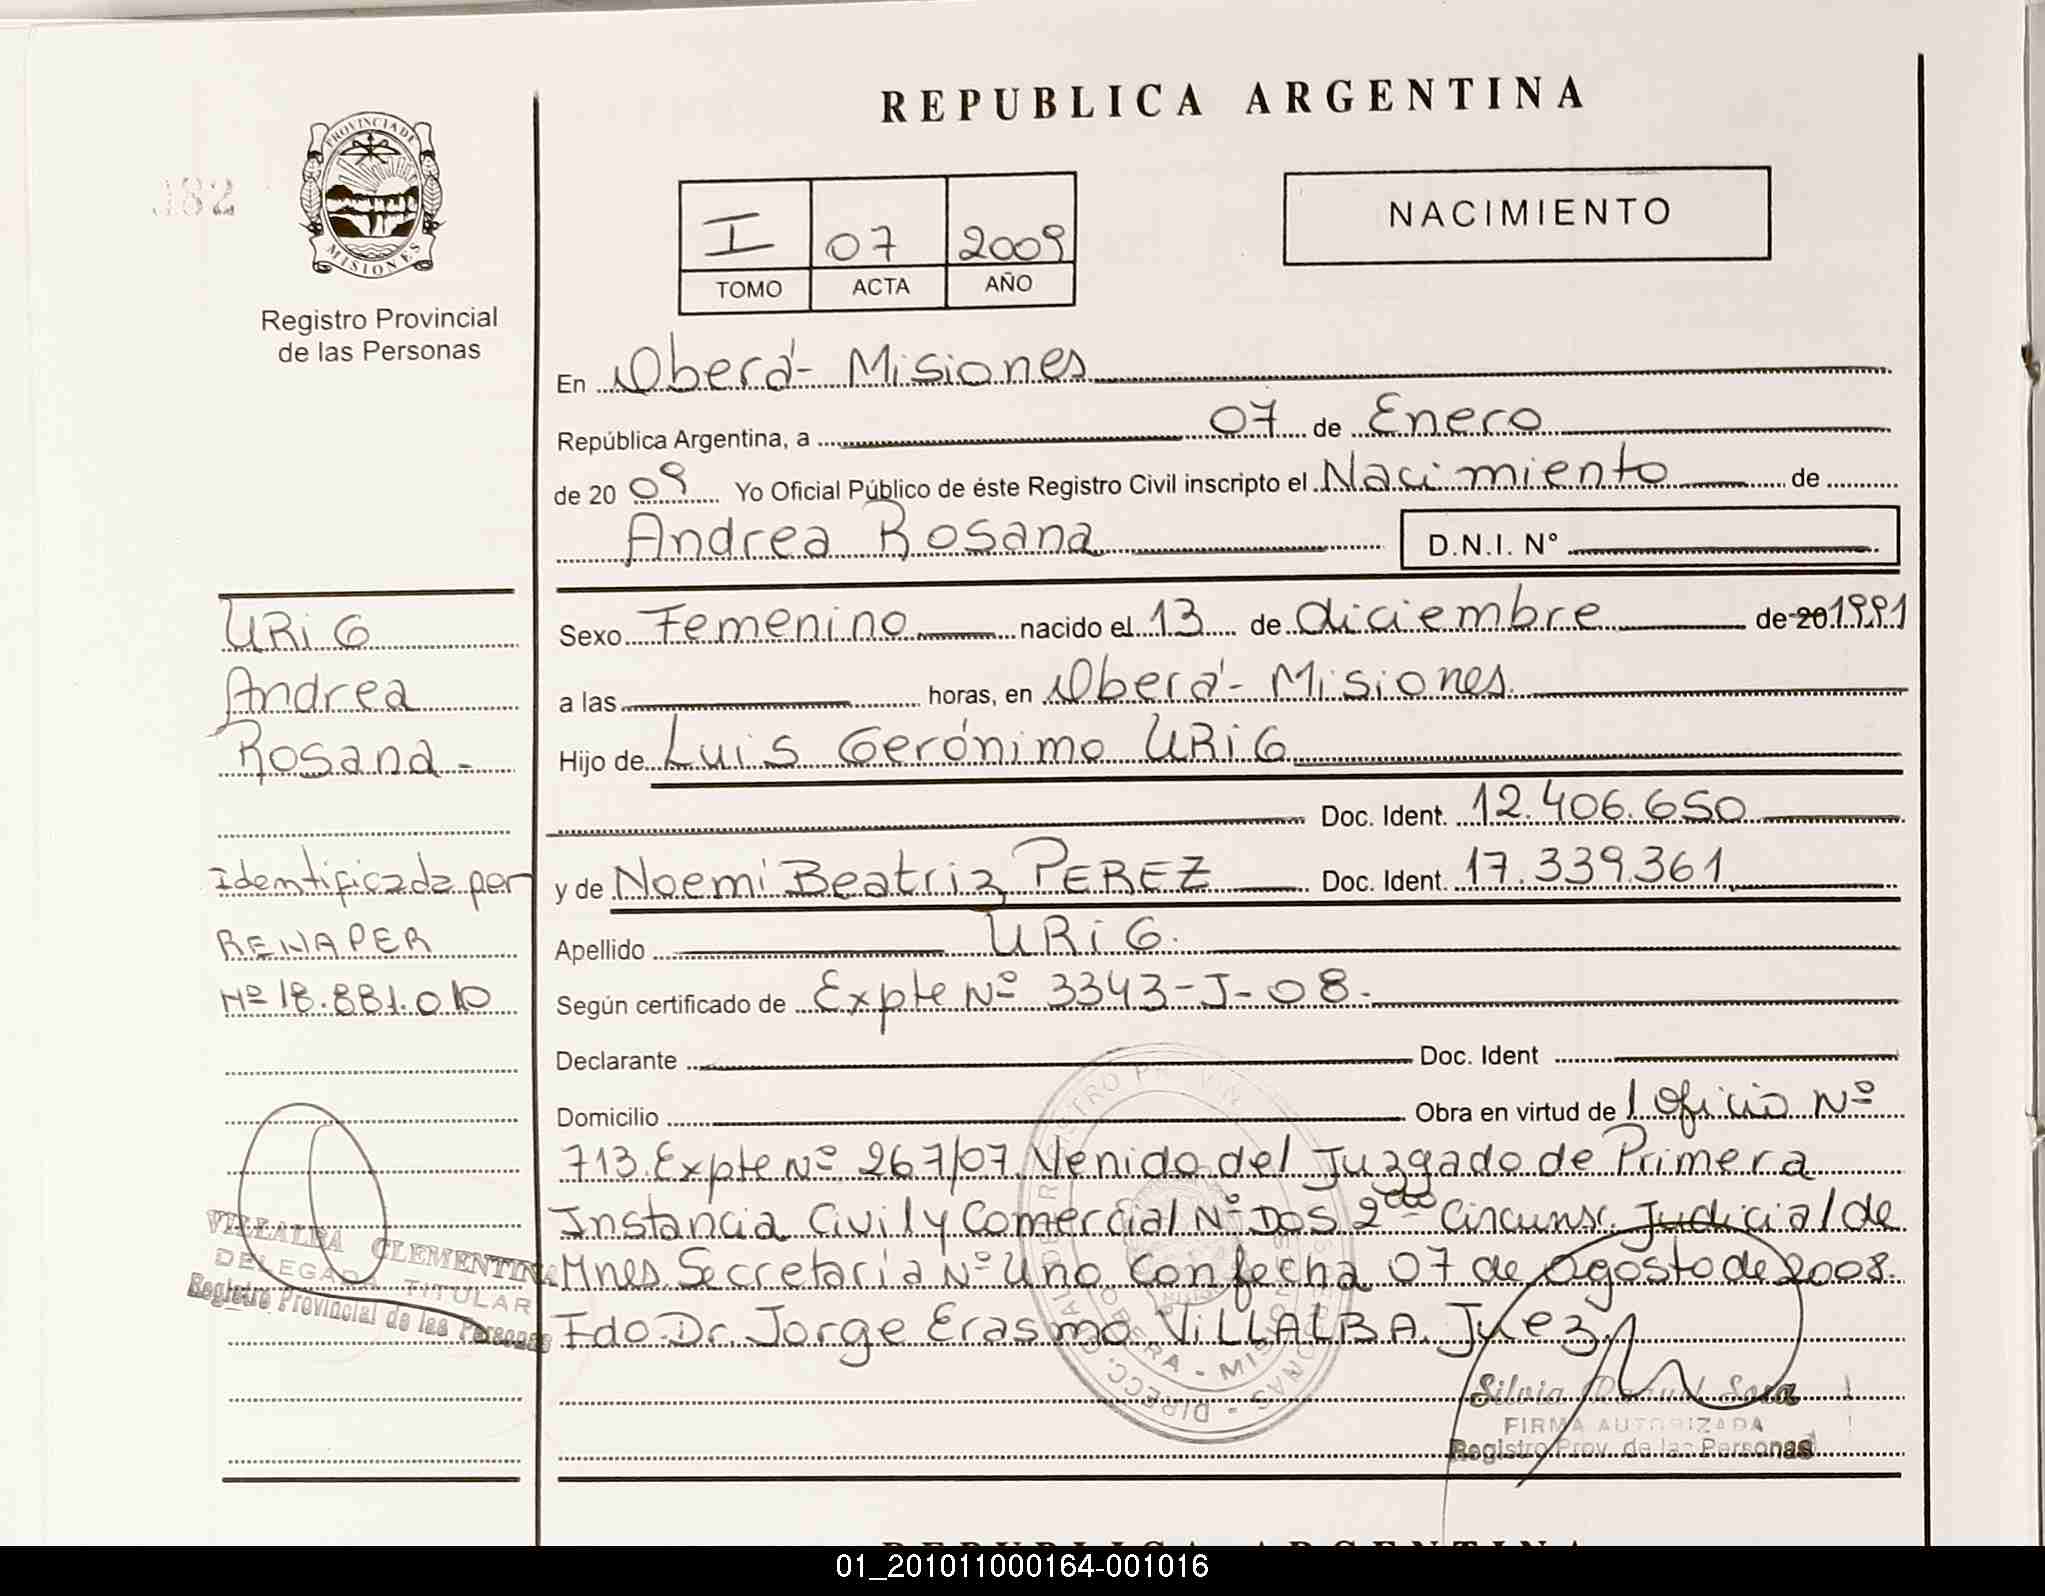 REPUBLICA ARGENTINA
182
PROVINCIA DE
MISIONES
Registro Provincial
de las Personas
I 07 2009
TOMO ACTA AÑO
NACIMIENTO
En Oberá - Misiones
República Argentina, a 07 de Enero
de 20 09 Yo Oficial Público de éste Registro Civil inscripto el Nacimiento de
Andrea Rosana D.N.I. N°
Sexo Femenino nacido el 13 de diciembre de 20 1991
a las horas, en Oberá - Misiones.
Hijo de Luis Gerónimo URiG
Doc. Ident. 12.406.650
y de Noemi Beatriz PEREZ Doc. Ident. 17.339.361
Apellido URiG.
Según certificado de Expte Nº 3343-J-08.
Declarante Doc. Ident
Domicilio Obra en virtud de Oficio Nº
713 Expte Nº 267/07 Venido del Juzgado de Primera
Instancia Civil y Comercial Nº DOS 2da Circunsc. Judicial de
Mnes. Secretaria Nº Uno Con fecha 07 de agosto de 2008.
Fdo. Dr. Jorge Erasmo ViLLALBA. Juez.
URiG
Andrea
Rosana -
Identificada por
RENAPER
Nº 18.881.010
VILLALBA CLEMENTINA
DELEGADA TITULAR
Registro Provincial de las Personas
OBERA - MISIONES
Silvia Sosa
FIRMA AUTORIZADA
Registro Prov. de las Personas
REPUBLICA ARGENTINA
01_201011000164-001016